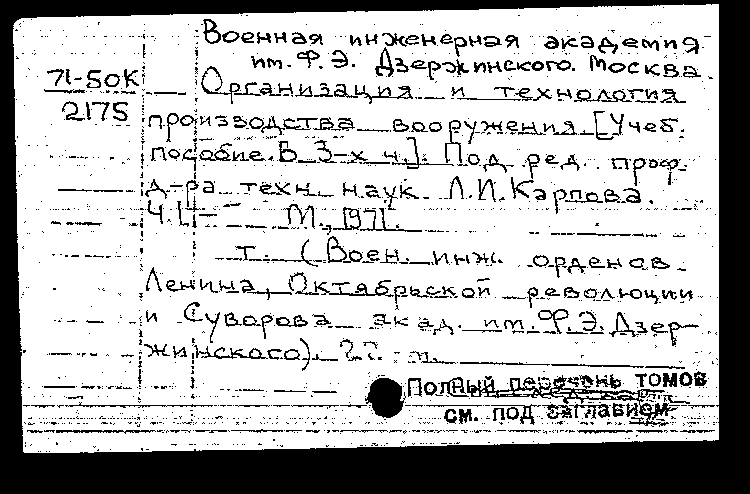 Военная инженерная академия
им. Ф.Э. Дзержинского. Москва.
71-50К
2175
Организация и технология
производства вооружения [Учеб.
пособие. В 3-х ч.]. Под ред. проф.
д-ра техн. наук Л.И. Карпова.
Ч. 1- М., 1971.
т. (Воен. инж. орденов
Ленина, Октябрьской революции
и Суворова акад. им. Ф.Э. Дзер-
жинского). 22
Полный перечень томов
см. под заглавием